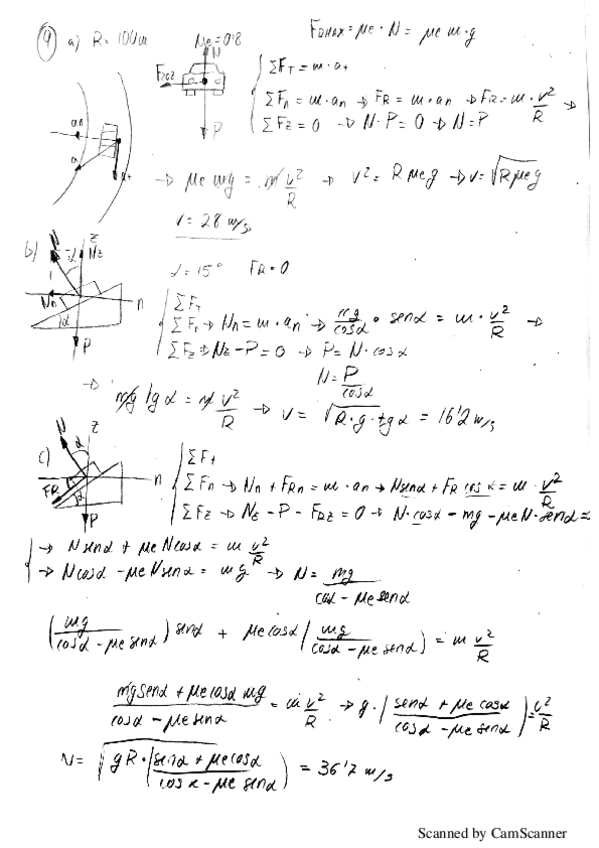 9 a) R = 100m μe = 0'8 FRMAX = μe · N = μe m·g
N
FROZ
P
an
a
at
ΣFT = m·a+
ΣFn = m·an → FR = m·an → FR = m·v²/R →
ΣFz = 0 → N-P = 0 → N = P
→ μe mg = m v²/R → v² = R μe g → v = √Rμeg
v = 28 m/s
b) N α z Nz
Nn n
α
P
α = 15° FR = 0
ΣFT
ΣFn → Nn = m·an → mg/cosα · senα = m·v²/R →
ΣFz → Nz-P = 0 → P = N·cosα
N = P/cosα
→ mg tgα = m v²/R → v = √R·g·tgα = 16'2 m/s
c) N α z
n
FR α
P
ΣFt
ΣFn → Nn + FRn = m·an → Nsenα + FR cosα = m·v²/R
ΣFz → Nz - P - FRz = 0 → N·cosα - mg - μeN·senα =
→ Nsenα + μe Ncosα = m v²/R
→ Ncosα - μe Nsenα = mg → N = mg/cosα - μe senα
(mg/cosα - μe senα) senα + μe cosα (mg/cosα - μe senα) = m v²/R
mg senα + μe cosα mg/cosα - μe senα = m v²/R → g·(senα + μe cosα/cosα - μe senα) = v²/R
v = √gR·(senα + μe cosα/cosα - μe senα) = 36'7 m/s
Scanned by CamScanner